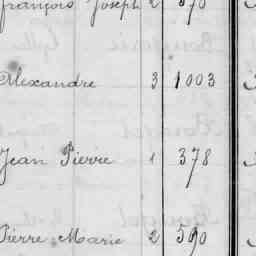 François Joseph 2 370
Alexandre 3 1003
Jean Pierre 1 378
Pierre Marie 2 590